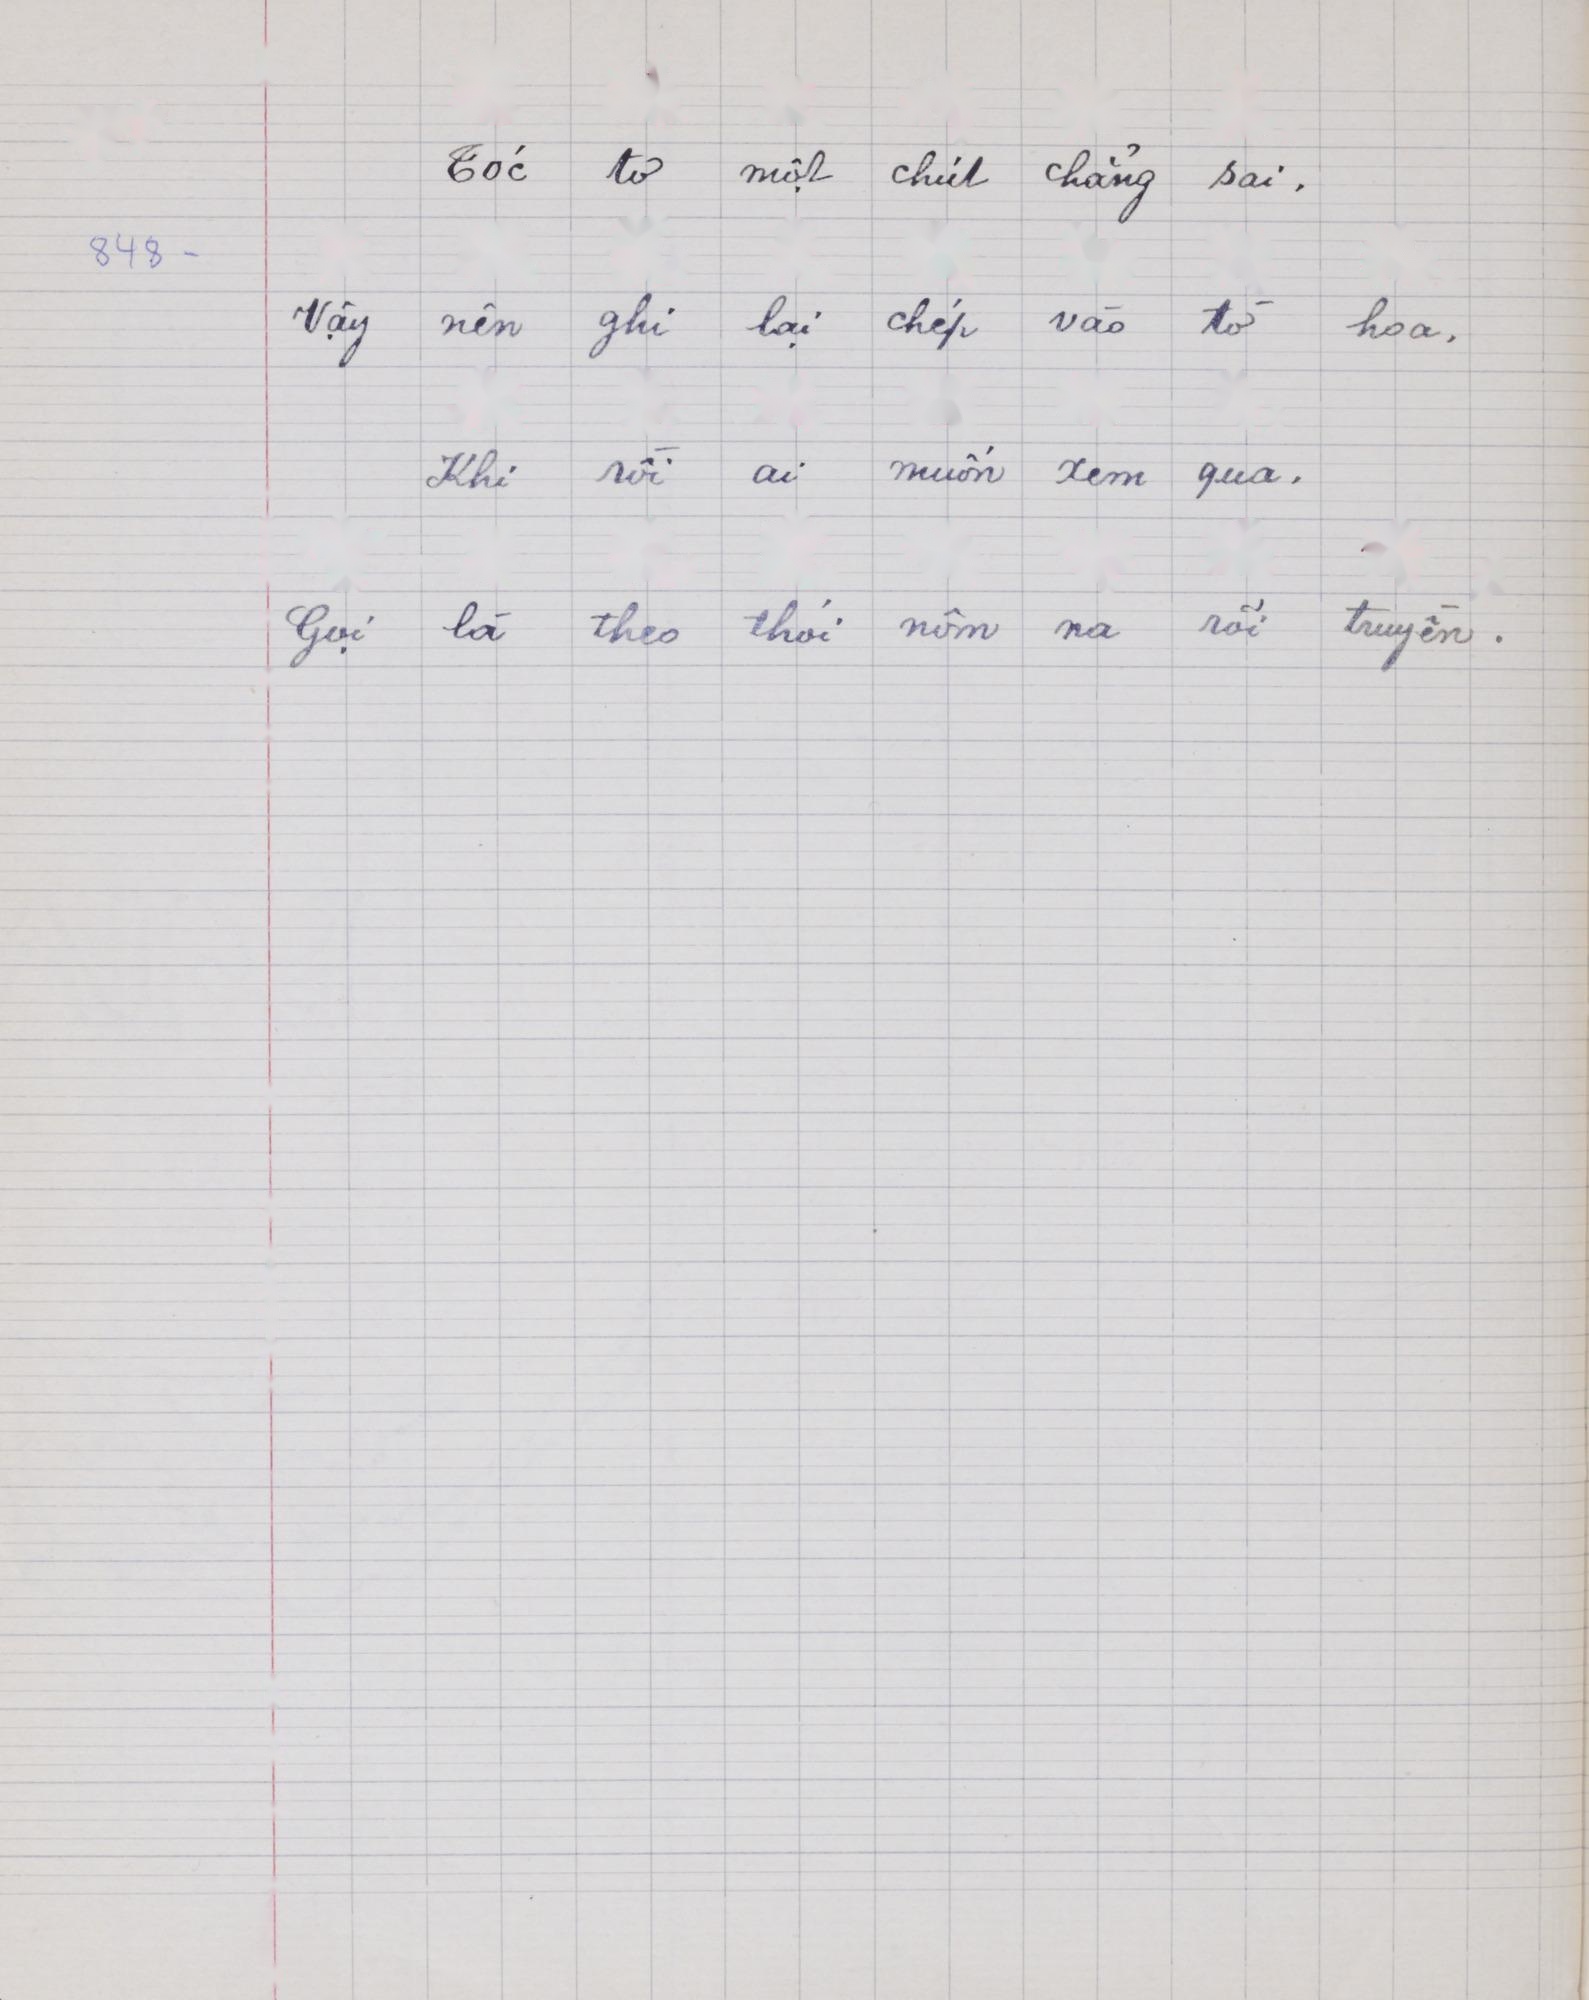 Tóc tơ một chút chẳng sai.
848 -
Vậy nên ghi lại chép vào tờ hoa.
Khi rồi ai muốn xem qua.
Gọi là theo thói nôm na rối truyền.